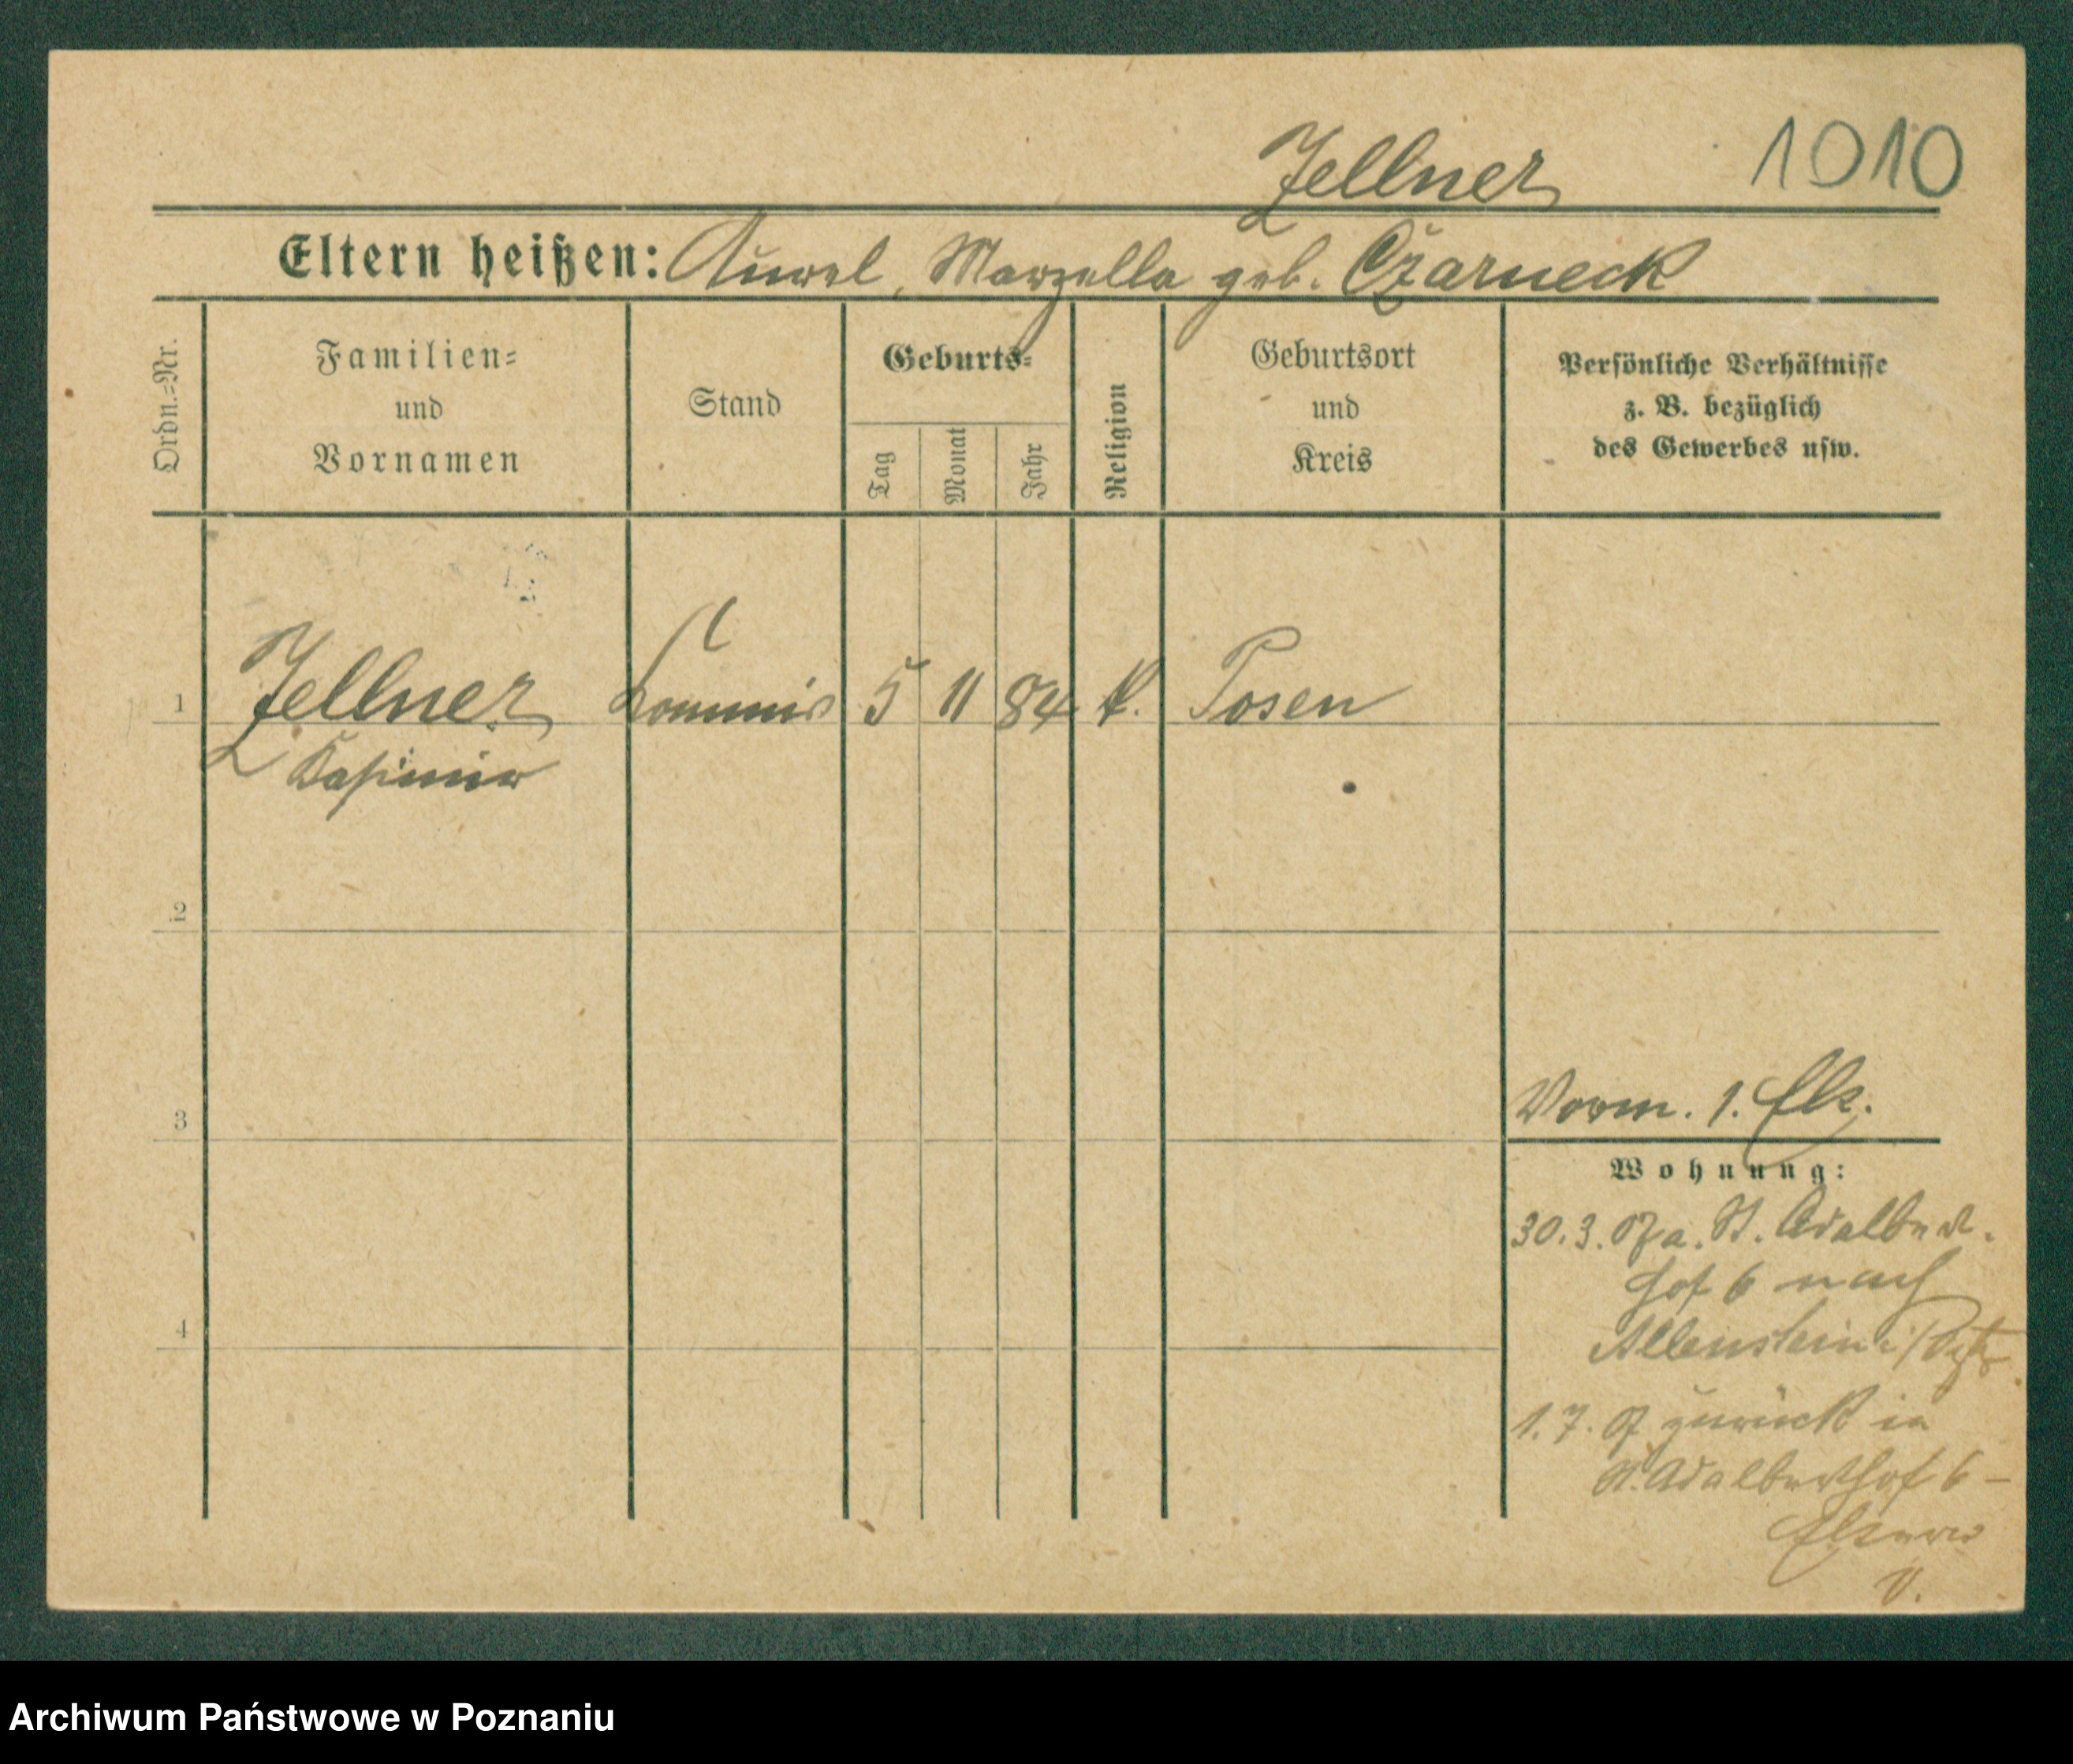 Zellner 1010
Eltern heißen: Aurel, Marzella geb. Czarneck
Ordn.=Nr.
Familien=
und
Vornamen
Stand
Geburts=
Tag
Monat
Jahr
Religion
Geburtsort
und
Kreis
Persönliche Verhältnisse
z. B. bezüglich
des Gewerbes usw.
1 Zellner Kommis 5 11 84 k. Posen
Kasimir
2
3
Vorm. 1.
Wohnung:
30.3.07 a. St. Adalbert-
hof 6 nach
4
Allenstein
1.7.07 zurück in
St. Adalberthof 6 –
V.
Archiwum Państwowe w Poznaniu